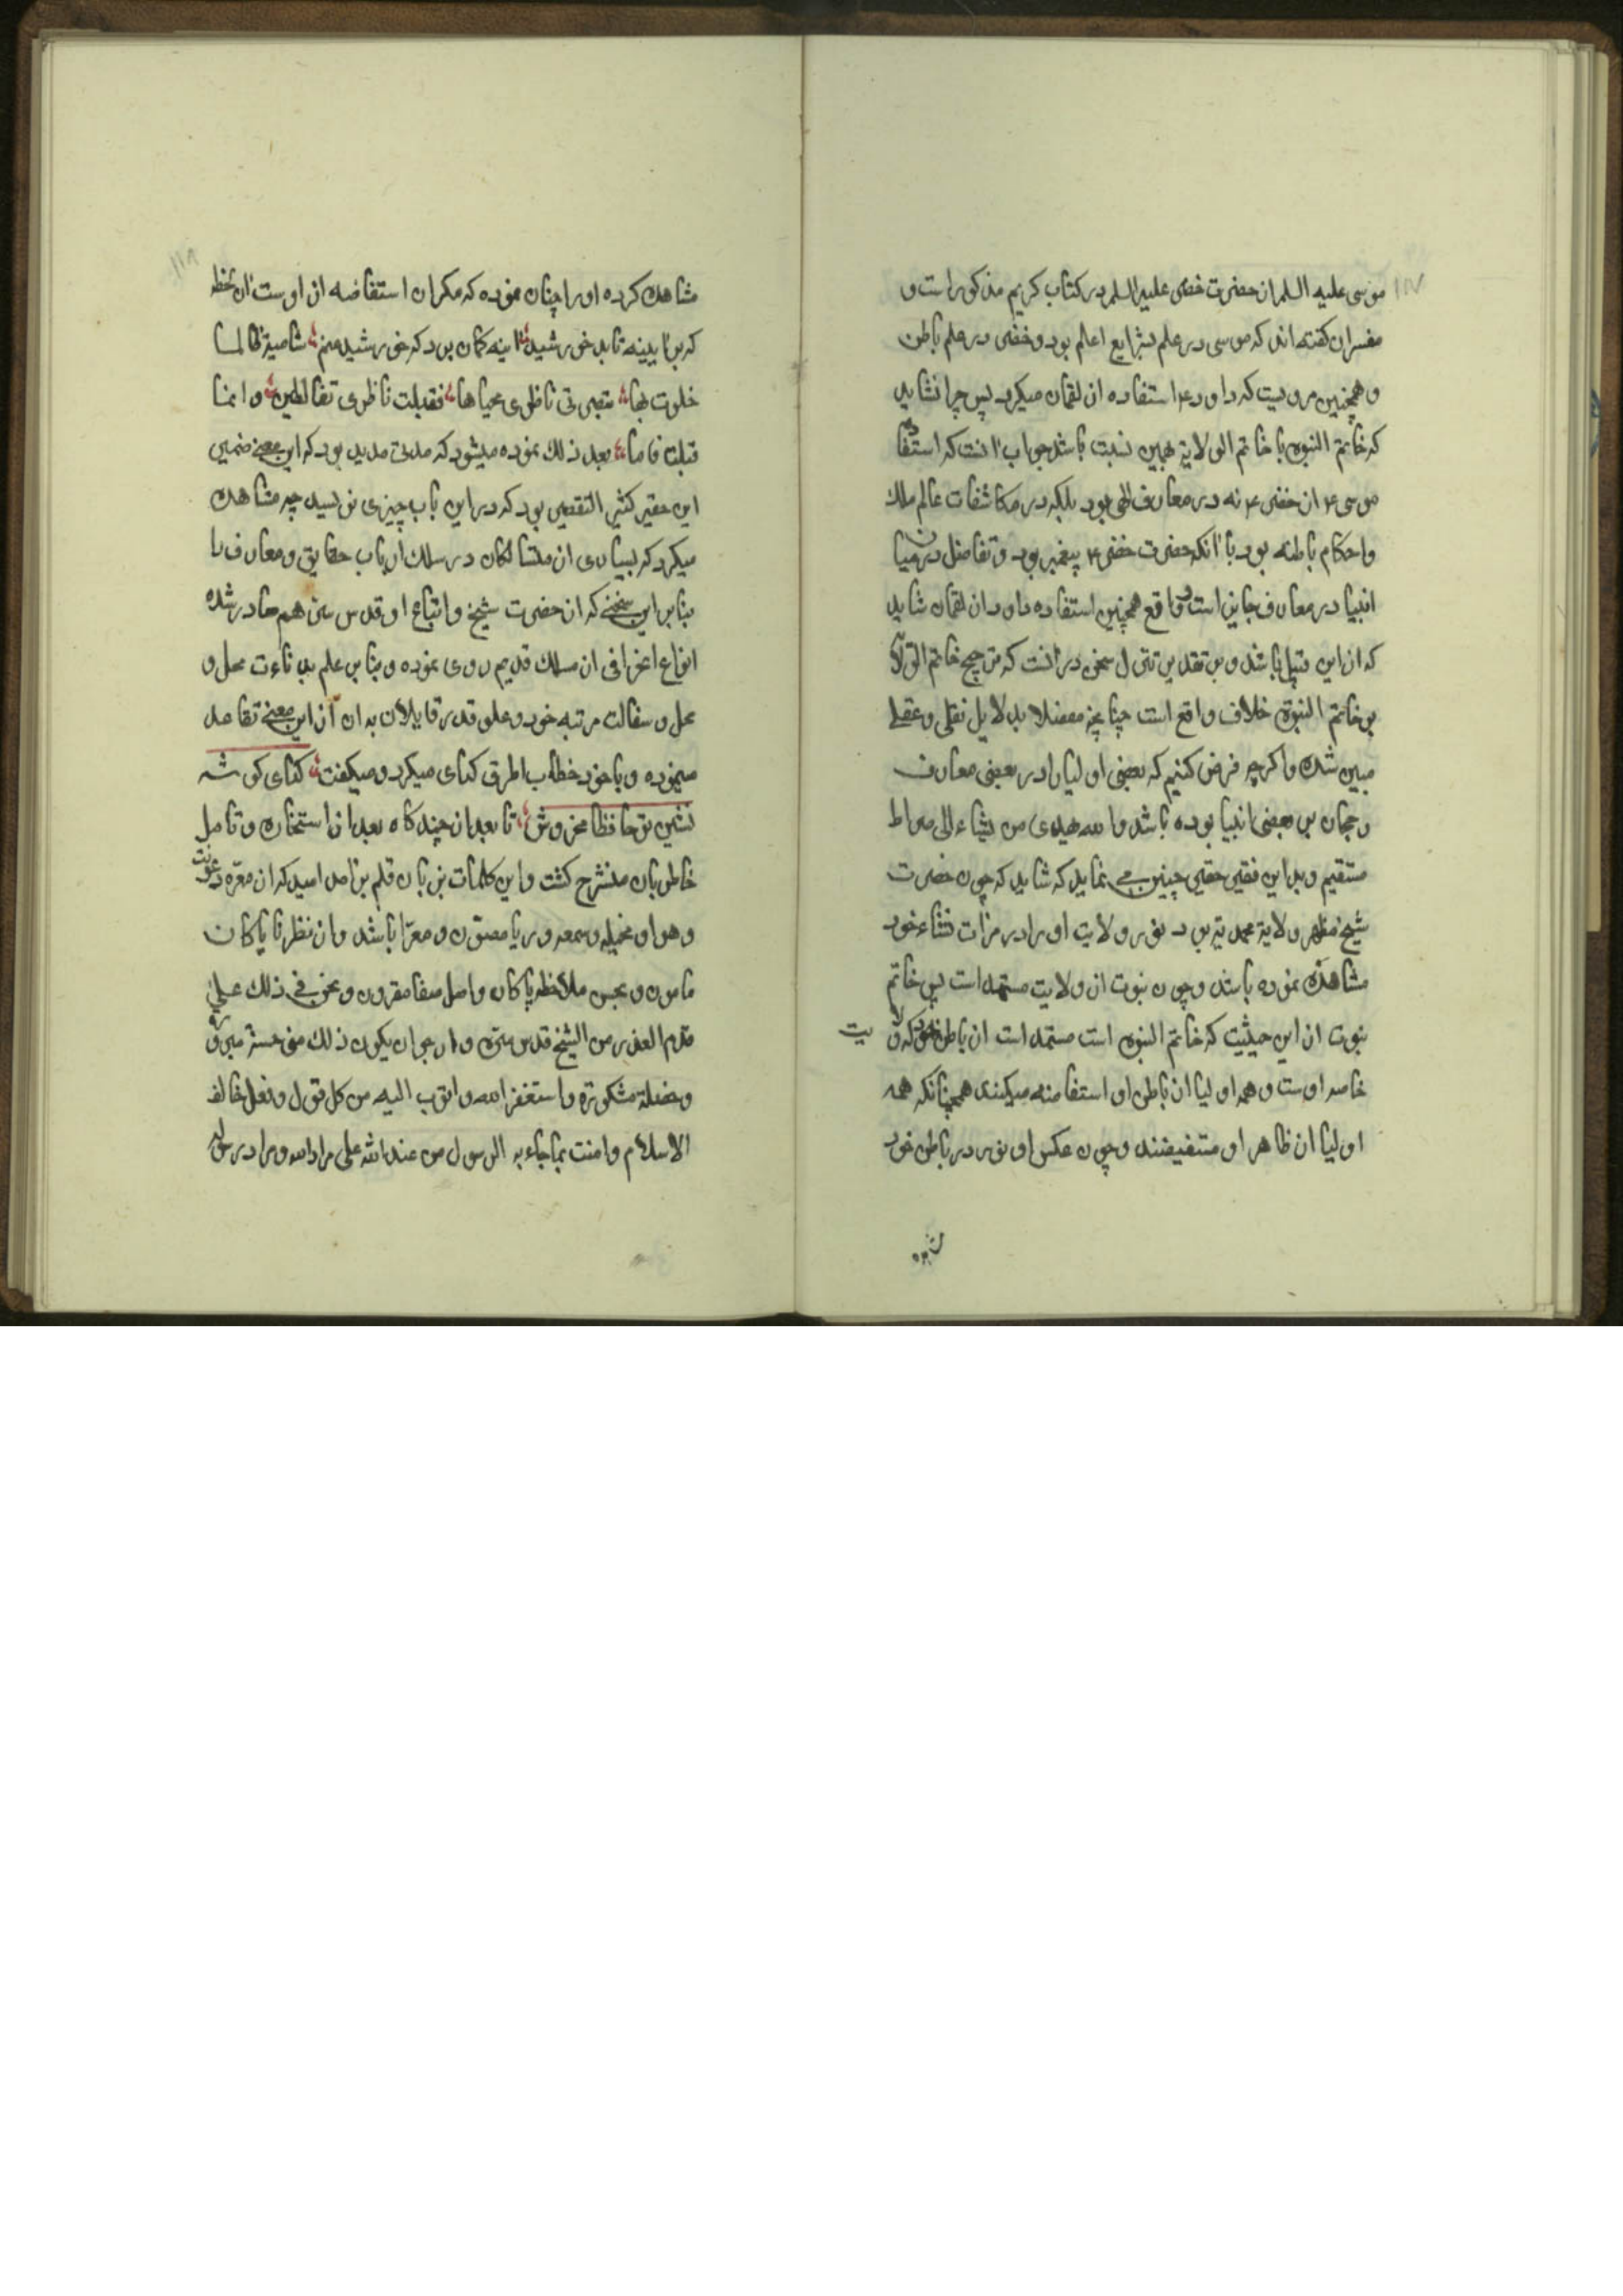 ١١٧
موسی علیه السلم از حضرت خضر علیه السلم در کتاب کریم مذکور است و
مفسران کفته اند که موسی در علم شرایع اعلم بود و خضر در علم باطن
و همچنین مرویست که داود ع استفاده از لقمان میکرد پس چرا نشاید
که خاتم النبوه با خاتم الولایة همین نسبت باشد جواب آنست که استفاده
موسی ع از خضر ع نه در معارف الهی بود بلکه در مکاشفات عالم ملک
و احکام باطنه بود با آنکه حضرت خضر ع پیغمبر بود و تفاضل در میان
انبیا در معارف جایز است و واقع همچنین استفاده داود از لقمان شاید
که از این قبیل باشد و بر تقدیر تنزل سخن در آنست که ترجیح خاتم الولا
بر خاتم النبوة خلاف واقع است چنانچه مفصلا بدلایل نقلی و عقلی
مبین شده و اکرچه فرض کنیم که بعضی اولیا را در بعضی معارف
رجحان بر بعضی انبیا بوده باشد والله یهدی من یشاء الی صراط
مستقیم و بدین فقیر حقیر چنین می نماید که شاید که چون حضرت
شیخ مظهر ولایة محمدیه بود نور ولایت او را در مرات نشاء خود
مشاهده نموده باشد و چون نبوت از ولایت مستمد است پس خاتم
نبوت از این حیثیت که خاتم النبوه است مستمد است از باطن خود که ولا یت
خاصه اوست و همه اولیا از باطن او استفاضه میکنند همچنانکه همه
اولیا از ظاهر او مستفیضند و چون عکس او نور در باطن خود
١١٨
مشاهده کرده او را چنان نموده که مکر آن استفاضه از اوست آن لحظه
که بر آیینه تابد خورشید آیینه کمان برد که خورشید منم شامیة طالما
خلوت بها تبصر فی ناظری محیاها فقبلت ناظری تغالطنی و انما
قبلت فاها بعد ذلک نموده میشود که مدتی مدید بود که این معنی ضمیر
این حقیر کثیر التقصیر بود که در این باب چیزی نویسد چه مشاهده
میکرد که بسیاری از سالکان در سلک ارباب حقایق و معارف را
بنابر این سخنی که از حضرت شیخ و اتباع او قدس سرهم صادر شده
انواع انحرافی از مسلک قدیم روی نموده و بنابر علم بدنائت محل و
محل و سفالت مرتبه خود و علو قدر قایلان بدان از این معنی تقاعد
مینمود و با خود خطاب اطرق کرای میکرد و میکفت کدای کوشه
نشین تو حافظا مخروش تا بعد از چند کاه بعد از استخاره و تامل
خاطر بآن منشرح کشت و این کلمات بر زبان قلم برآمد امید که از معره رعونت
و هوا و مخیله و سمعه و ریا مصون و معرا باشد و از نظر ناپاکان
مامون و بحسن ملاحظه پاکان و اصل صفا مقرون و نحن فی ذلک علی
قدم العذر من الشیخ قدس سره و ارجوا ان یکون ذلک منی حسنة مبروره
و خصلة مشکورة و استغفر الله و اتوب الیه من کل قول و فعل خالف
الاسلام و امنت بما جاء به الرسول من عند الله علی مراد الله و مراد رسوله